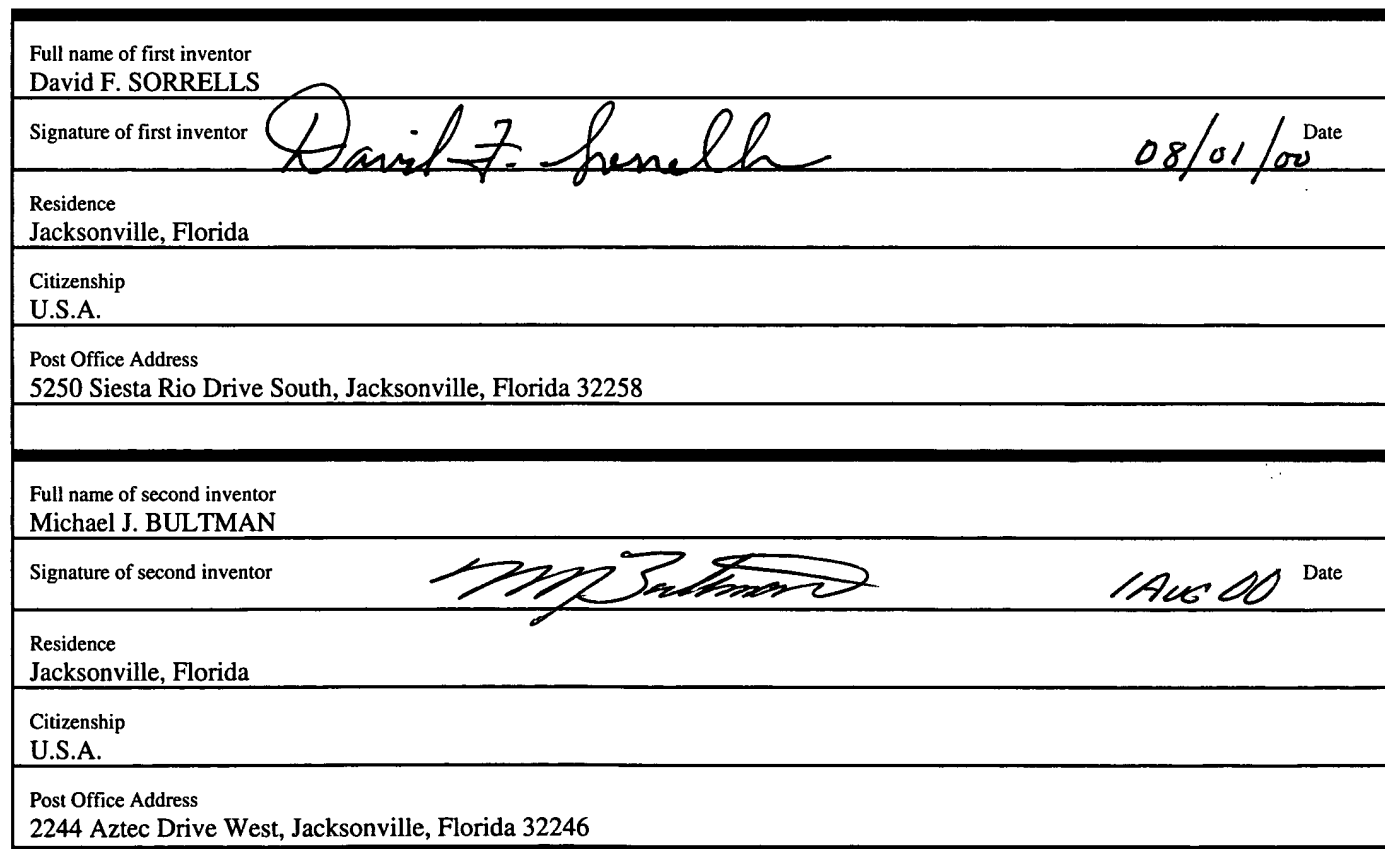 Full name of first inventor
David F. SORRELLS
Signature of first inventor David F. Sorrells 08/01/00 Date
Residence
Jacksonville, Florida
Citizenship
U.S.A.
Post Office Address
5250 Siesta Rio Drive South, Jacksonville, Florida 32258
Full name of second inventor
Michael J. BULTMAN
Signature of second inventor MJBultman 1 AUG 00 Date
Residence
Jacksonville, Florida
Citizenship
U.S.A.
Post Office Address
2244 Aztec Drive West, Jacksonville, Florida 32246